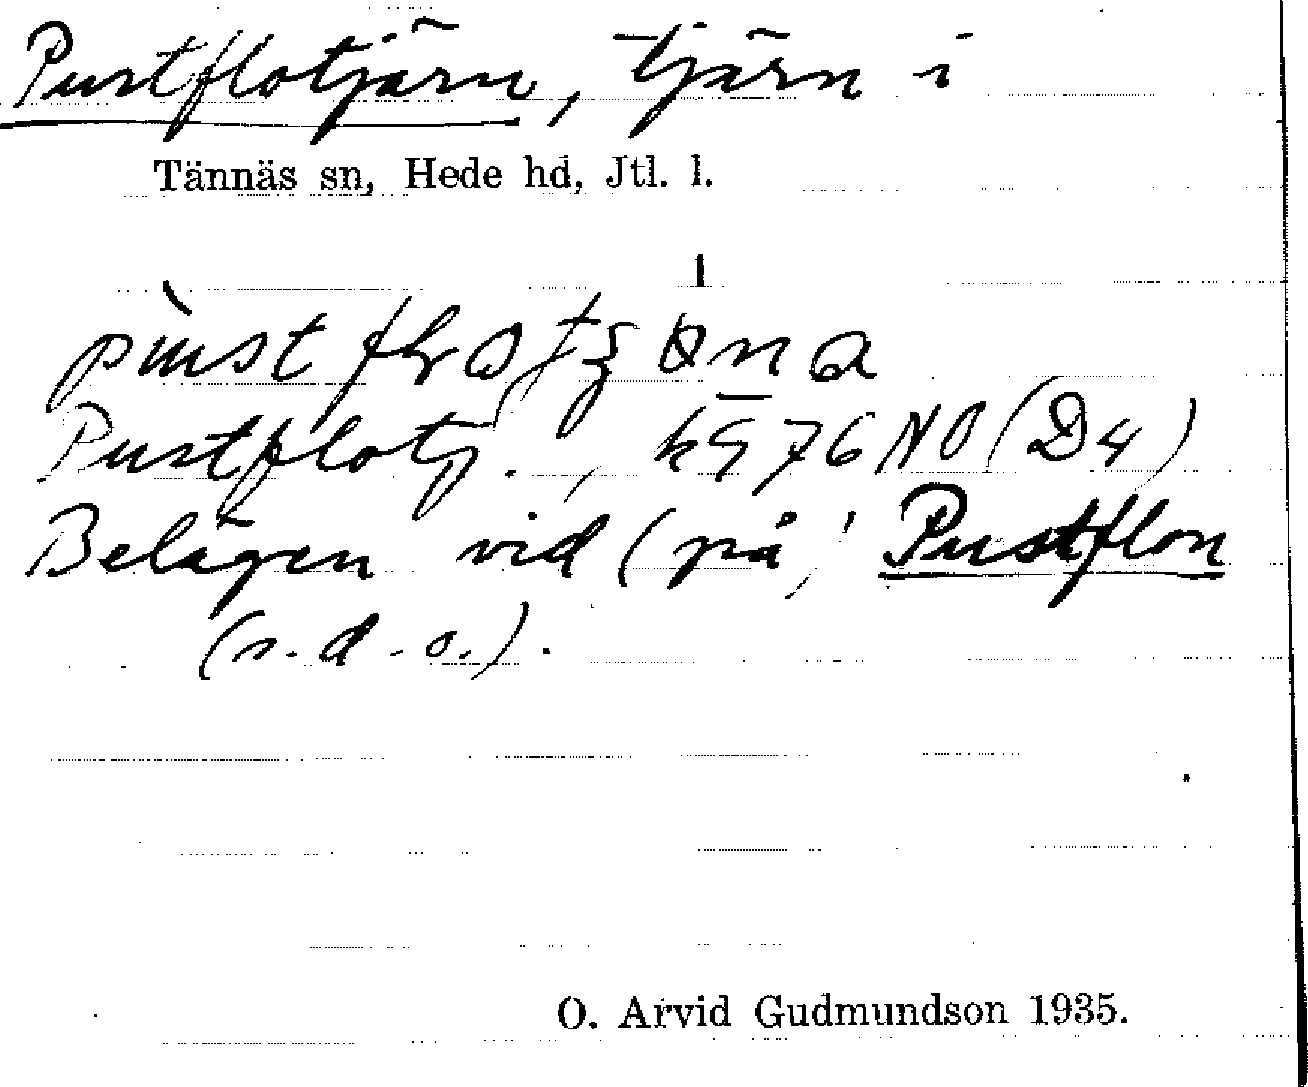 Pustflotjärn, tjärn i
Tännäs sn, Hede hd, Jtl. l.
Pustflotj., kg 76 NO (D4)
Belägen vid (på) Pustflon
(s.d.o.).
O. Arvid Gudmundson 1935.